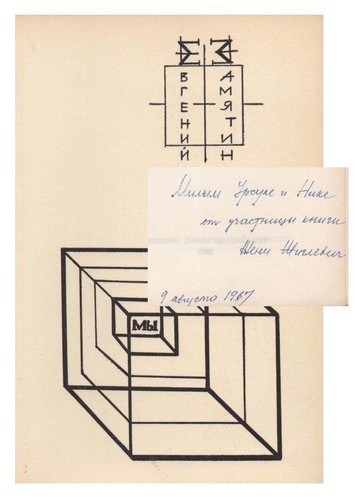 ЕВГЕНИЙ
ЗАМЯТИН
Милым Урсуле и Нике
от участницы книги
Жени Жиглевич
9 августа 1967
МЫ